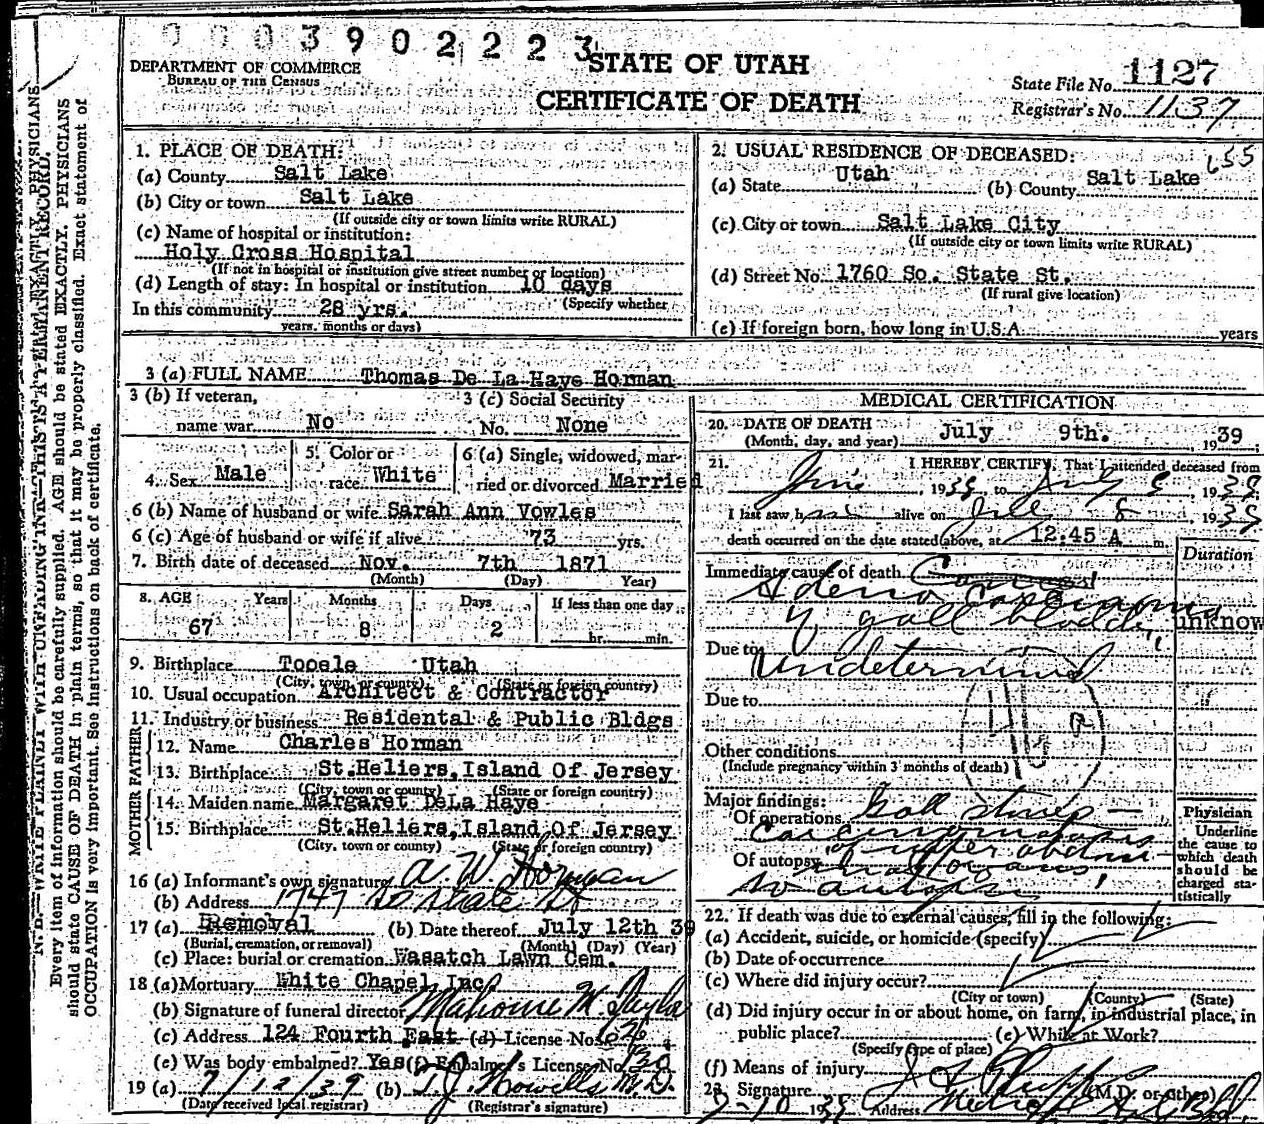 0003902223
DEPARTMENT OF COMMERCE
BUREAU OF THE CENSUS
STATE OF UTAH
CERTIFICATE OF DEATH
State File No. 1127
Registrar's No. 1137
1. PLACE OF DEATH:
(a) County Salt Lake
(b) City or town Salt Lake
(If outside city or town limits write RURAL)
(c) Name of hospital or institution:
Holy Cross Hospital
(If not in hospital or institution give street number or location)
(d) Length of stay: In hospital or institution 10 days
(Specify whether
In this community 28 yrs.
years, months or days)
2. USUAL RESIDENCE OF DECEASED:
(a) State Utah (b) County Salt Lake
(c) City or town Salt Lake City
(If outside city or town limits write RURAL)
(d) Street No. 1760 So. State St.
(If rural give location)
(e) If foreign born, how long in U.S.A. years
3 (a) FULL NAME Thomas De La Haye Horman
3 (b) If veteran,
name war No
3 (c) Social Security
No. None
4. Sex Male
5. Color or
race White
6 (a) Single, widowed, mar-
ried or divorced Married
6 (b) Name of husband or wife Sarah Ann Vowles
6 (c) Age of husband or wife if alive 73 yrs.
7. Birth date of deceased Nov. 7th 1871
(Month) (Day) Year)
8. AGE Years Months Days If less than one day
67 8 2 hr. min.
9. Birthplace Tooele Utah
(City, town, or county) (State or foreign country)
10. Usual occupation Architect & Contractor
11. Industry or business Residental & Public Bldgs
FATHER
12. Name Charles Horman
13. Birthplace St.Heliers,Island Of Jersey
(City, town or county) (State or foreign country)
MOTHER
14. Maiden name Margaret DeLa Haye
15. Birthplace St.Heliers,Island Of Jersey
(City, town or county) (State or foreign country)
16 (a) Informant's own signature A. W. Horman
(b) Address 1747 So State St
17 (a) Removal (b) Date thereof July 12th 39
(Burial, cremation, or removal) (Month) (Day) (Year)
(c) Place: burial or cremation Wasatch Lawn Cem.
18 (a) Mortuary White Chapel, Inc
(b) Signature of funeral director
(c) Address 124 Fourth East (d) License No.
(e) Was body embalmed? Yes (f) Embalmer's License No.
19 (a) 7/12/39 (b) T. J. Howells M.D.
(Date received local registrar) (Registrar's signature)
MEDICAL CERTIFICATION
20. DATE OF DEATH July 9th. 1939
(Month, day, and year)
21. I HEREBY CERTIFY, That I attended deceased from
June, 1939 to July 8, 1939
I last saw him alive on July 8, 1939
death occurred on the date stated above, at 12.45 A m.
Duration
Immediate cause of death
Adeno Carcinoma
of gall bladder unknow
Due to Undetermined
Due to
Other conditions
(Include pregnancy within 3 months of death)
Major findings:
Of operations Gall stones —
Carcinomatosis
of upper abdom-
Of autopsy
no autopsy
Physician
Underline
the cause to
which death
should be
charged sta-
tistically
22. If death was due to external causes, fill in the following:
(a) Accident, suicide, or homicide (specify)
(b) Date of occurrence
(c) Where did injury occur?
(City or town) (County) (State)
(d) Did injury occur in or about home, on farm, in industrial place, in
public place? (e) While at Work?
(Specify type of place)
(f) Means of injury
23. Signature (M.D. or other)
7-10 1939 Address
Every item of information should be carefully supplied. AGE should be stated EXACTLY. PHYSICIANS
should state CAUSE OF DEATH in plain terms, so that it may be properly classified. Exact statement of
OCCUPATION is very important. See instructions on back of certificate.